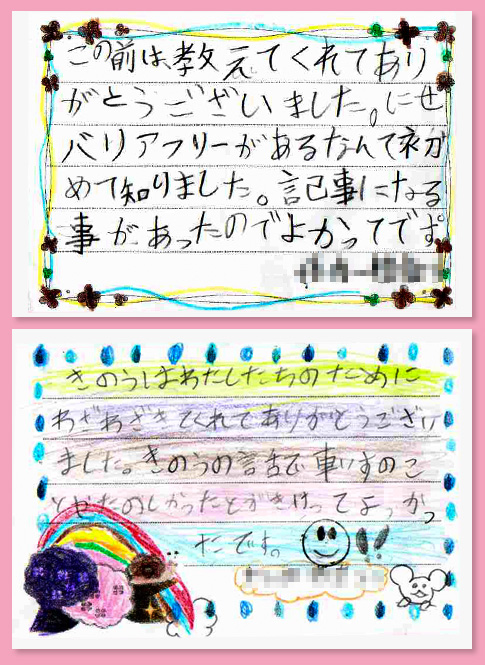 この前は、教えてくれてあり
がとうございました。にせ
バリアフリーがあるなんて初
めて知りました。記事になる
事があったのでよかってです。
きのうはわたしたちのために
わざわざきてくれてありがとうござい
ました。きのうの話で車いすのこ
とやたのしかったとがきけってよっかっ
たです。